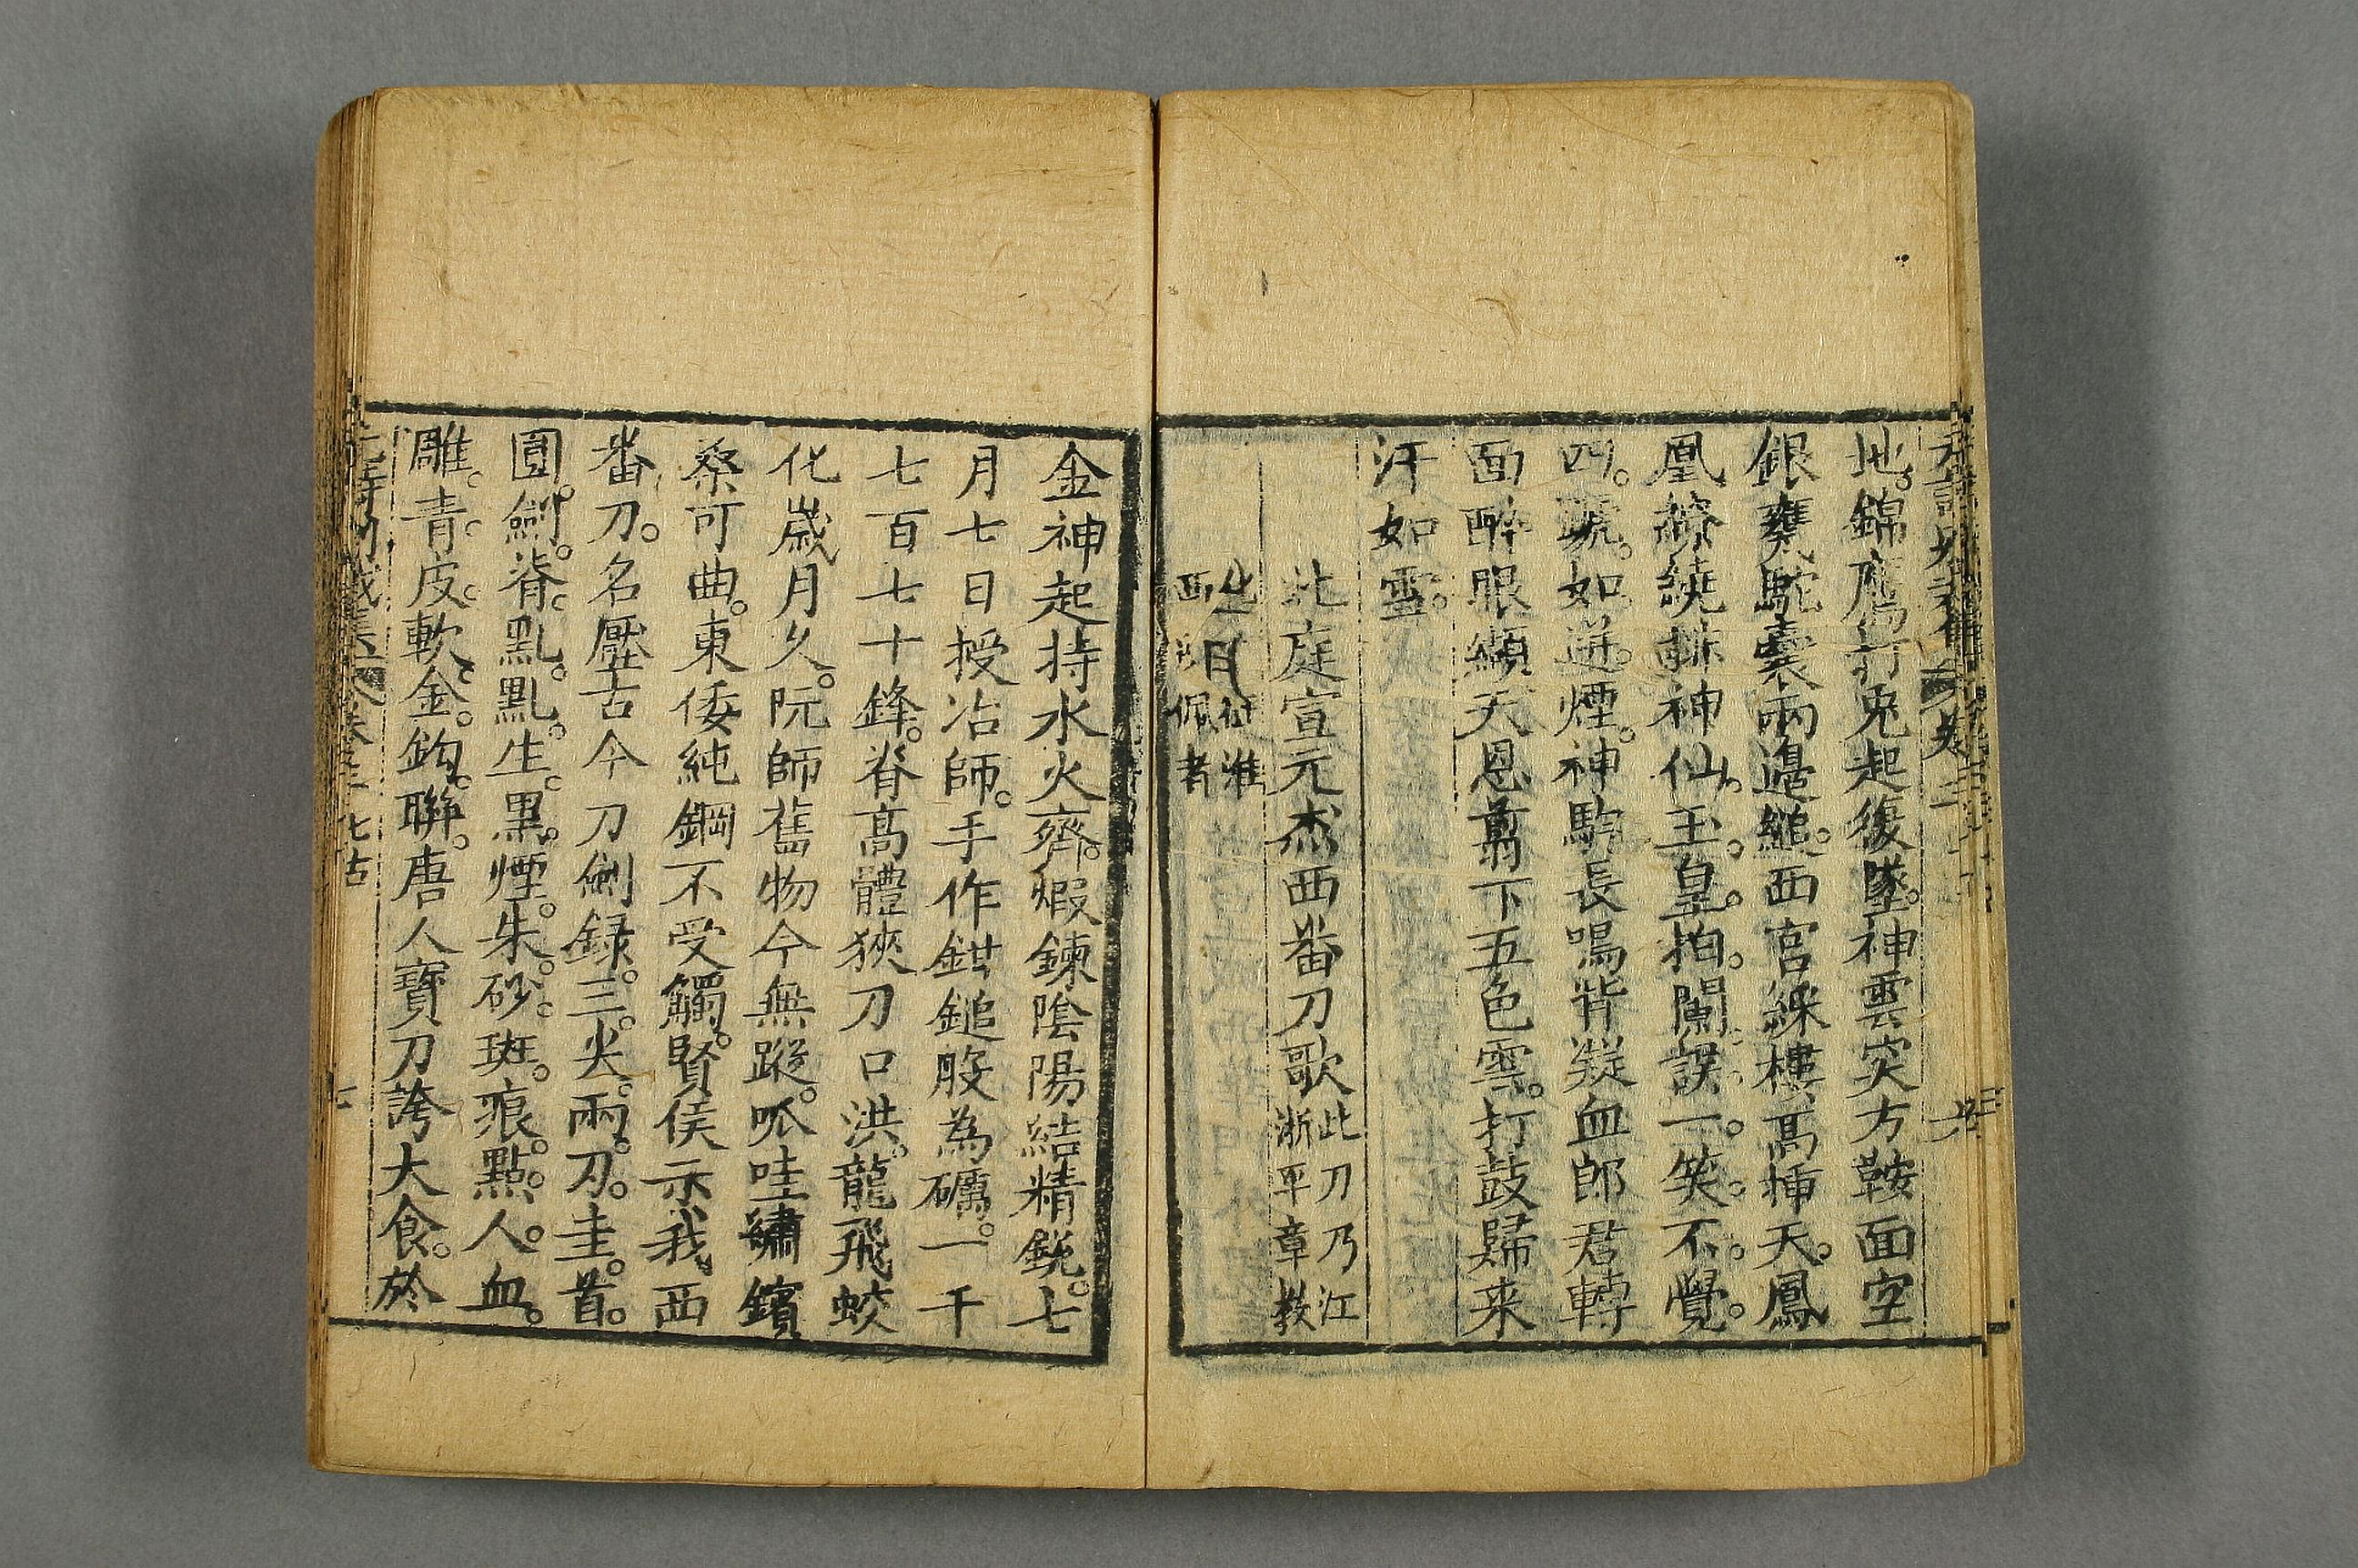 地錦鷹打兎起復墜神雲突方鞍面空
銀甕駝囊兩邊縋西宮綵樓髙揷天鳳
凰繚繞躰神仙玉皇拍闌誤一笑不覺
四蹏如迸煙神駒長鳴背凝血郎君轉
面醉眼纈天恩剪下五色雲打鼓歸来
汗如雪
北庭宣元杰西番刀歌
此刀乃江
浙平章教
化征淮
西所佩者
金神起持水火齊煆鍊陰陽結精銳七
月七日授冶師手作鉗鎚股為礪一千
七百七十鋒脊髙體狹刀口洪龍飛蛟
化歲月久阮師舊物今無蹤呱哇繡鑌
柔可曲東倭純鋼不受觸賢侯示我西
番刀名壓古今刀劍録三尖兩刃圭首
圓劍脊亂點生黒煙朱砂斑痕點人血
雕青皮軟金鈎聯唐人寶刀誇大食於